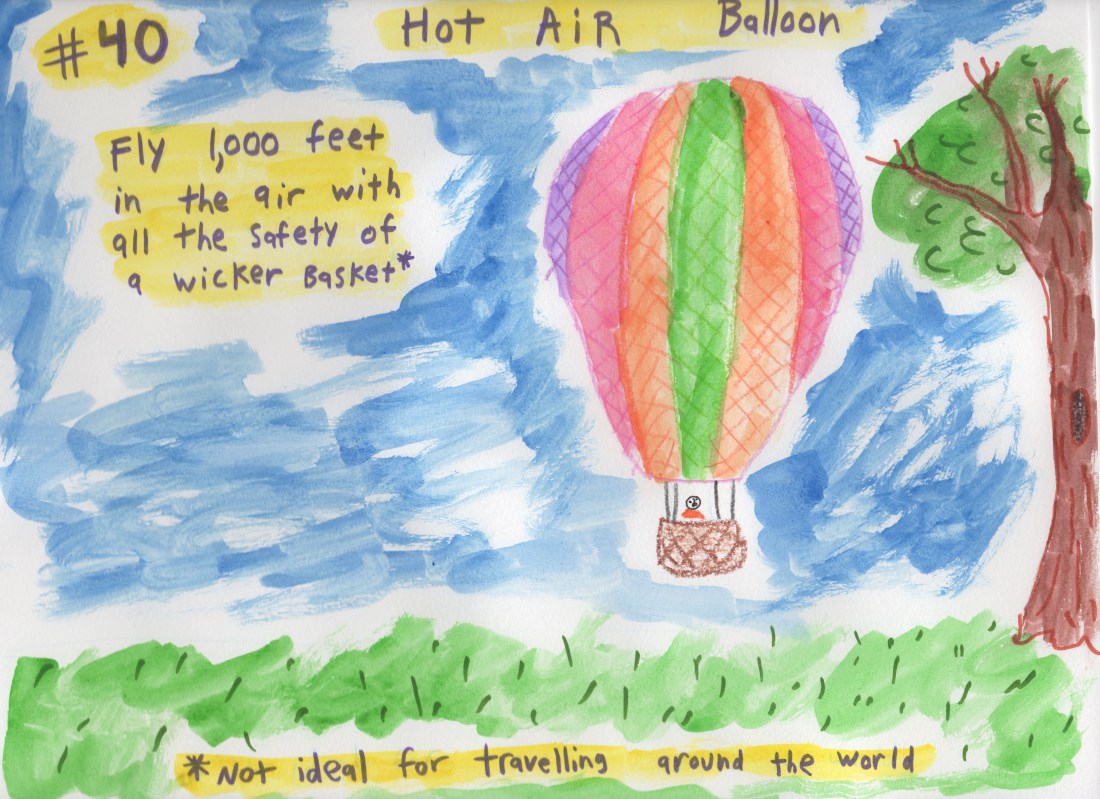 #40
Hot AiR Balloon
Fly 1,000 feet
in the air with
all the safety of
a wicker Basket*
*Not ideal for travelling around the world